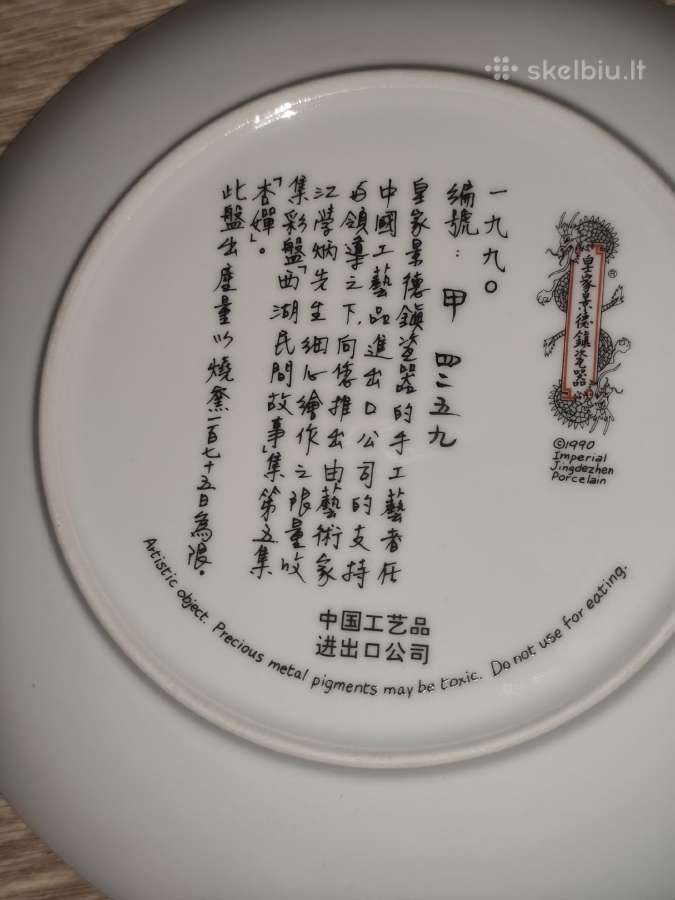 skelbiu.lt
皇家景德鎮瓷器
®
©1990
Imperial
Jingdezhen
Porcelain
一九九〇
編號：甲 四二五九
皇家景德鎮瓷器的手工藝者在
中國工藝品進出口公司的支持
与領導之下，向您推出由藝術家
江學炳先生細心繪作之限量收
集彩盤「西湖民間故事」集第五集
「杏嬋」。
此盤出產量以燒窯一百七十五日為限。
中国工艺品
进出口公司
Artistic object. Precious metal pigments may be toxic. Do not use for eating.